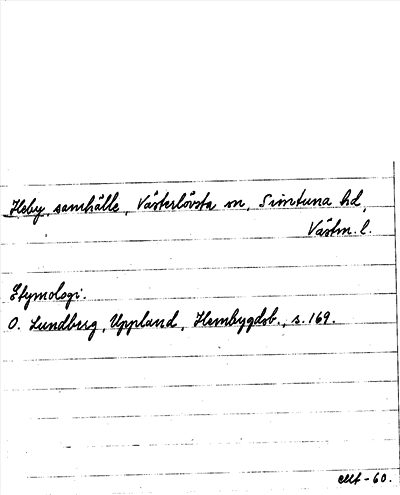 Heby, samhälle, Västerlövsta sn, Simtuna hd,
Västm. l.
Etymologi.
O. Lundberg, Uppland, Hembygdsb., s. 169.
-60.